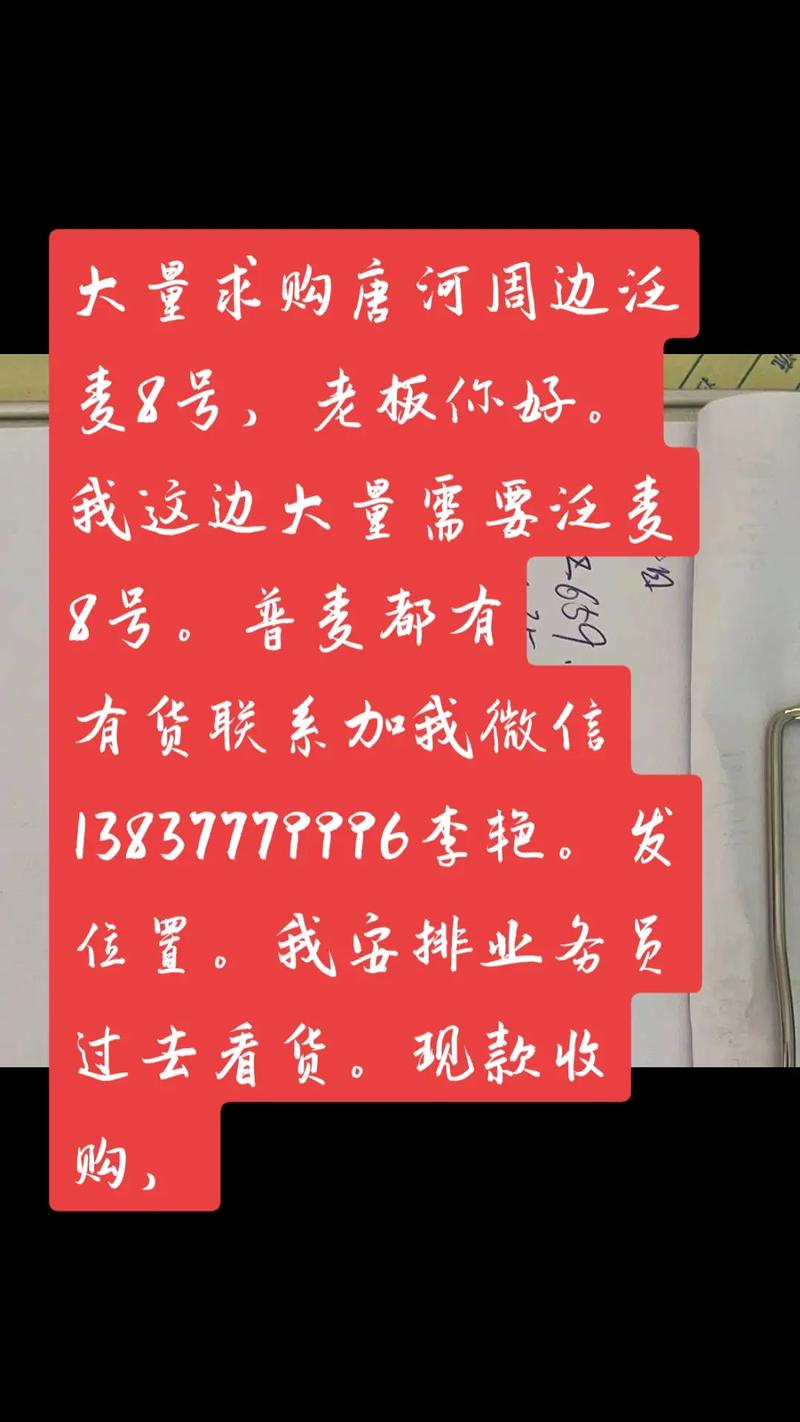 大量求购唐河周边泛
麦8号，老板你好。
我这边大量需要泛麦
8号。普麦都有
有货联系加我微信
13837779996李艳。发
位置。我安排业务员
过去看货。现款收
购，
659